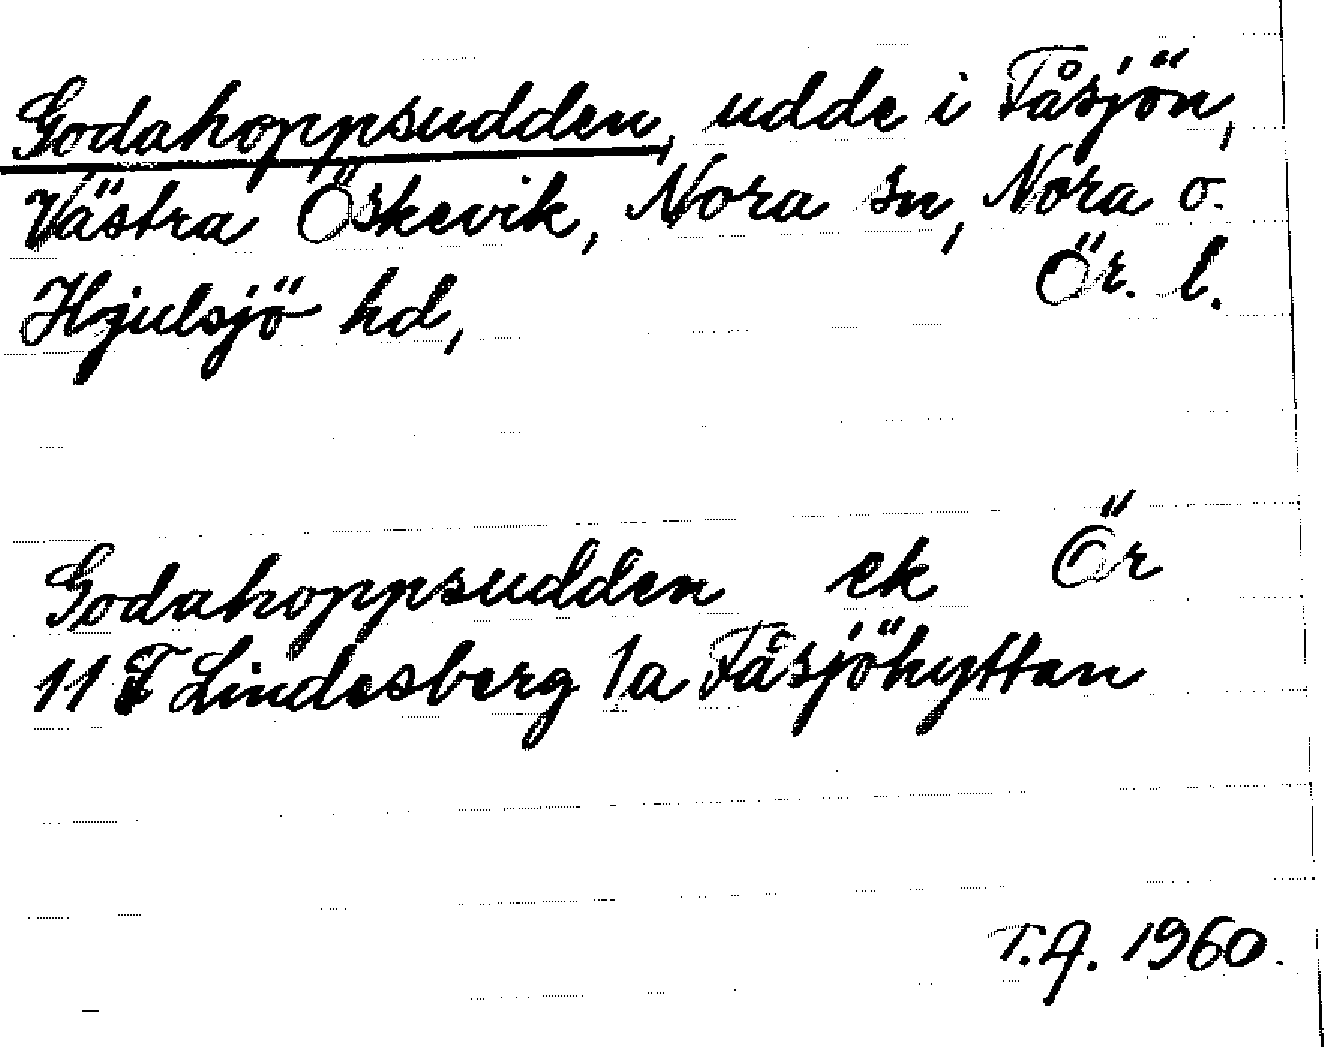 Godahoppsudden, udde i Fåsjön,
Västra Öskevik, Nora sn, Nora o.
Hjulsjö hd, Ör. l.
Godahoppsudden ek Ör
11 F Lindesberg 1a Fåsjöhyttan
T.A. 1960.